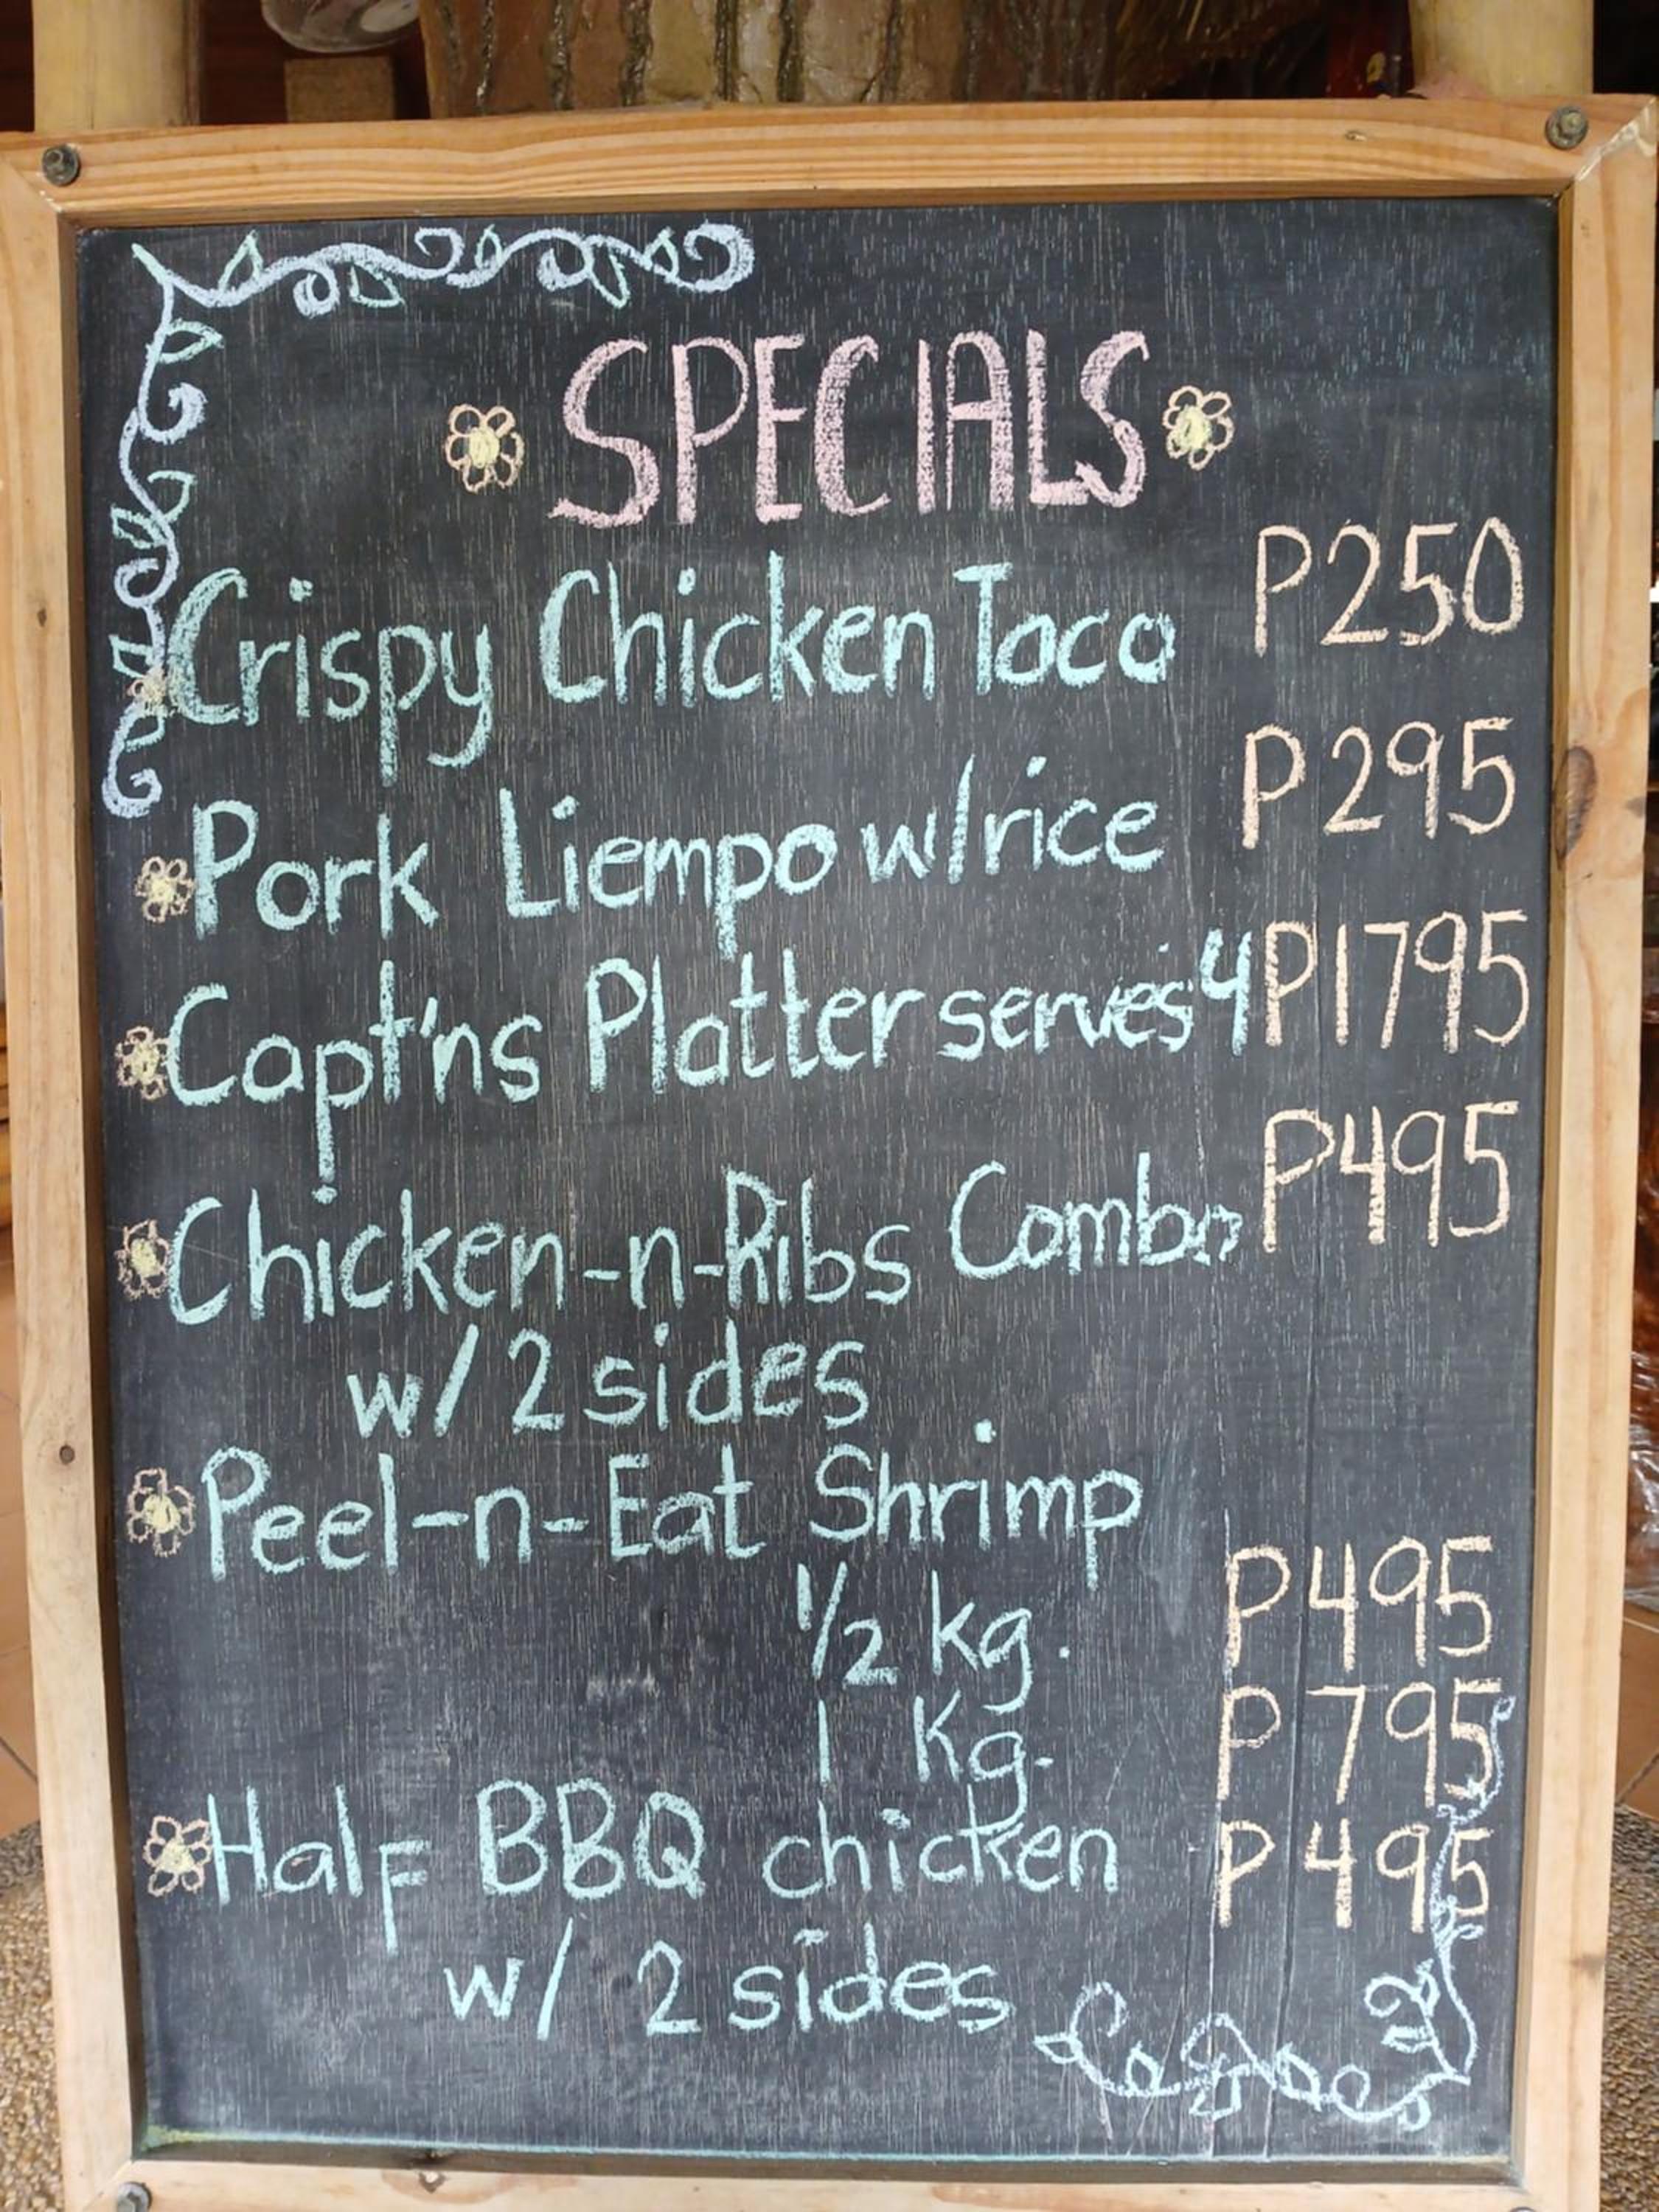 SPECIALS
Crispy Chicken Taco P250
Pork Liempo w/rice P295
Capt'ns Platter serves 4 P1795
Chicken-n-Ribs Combo P495
w/ 2 sides
Peel-n-Eat Shrimp
1/2 kg. P495
1 Kg. P795
Half BBQ chicken P495
w/ 2 sides